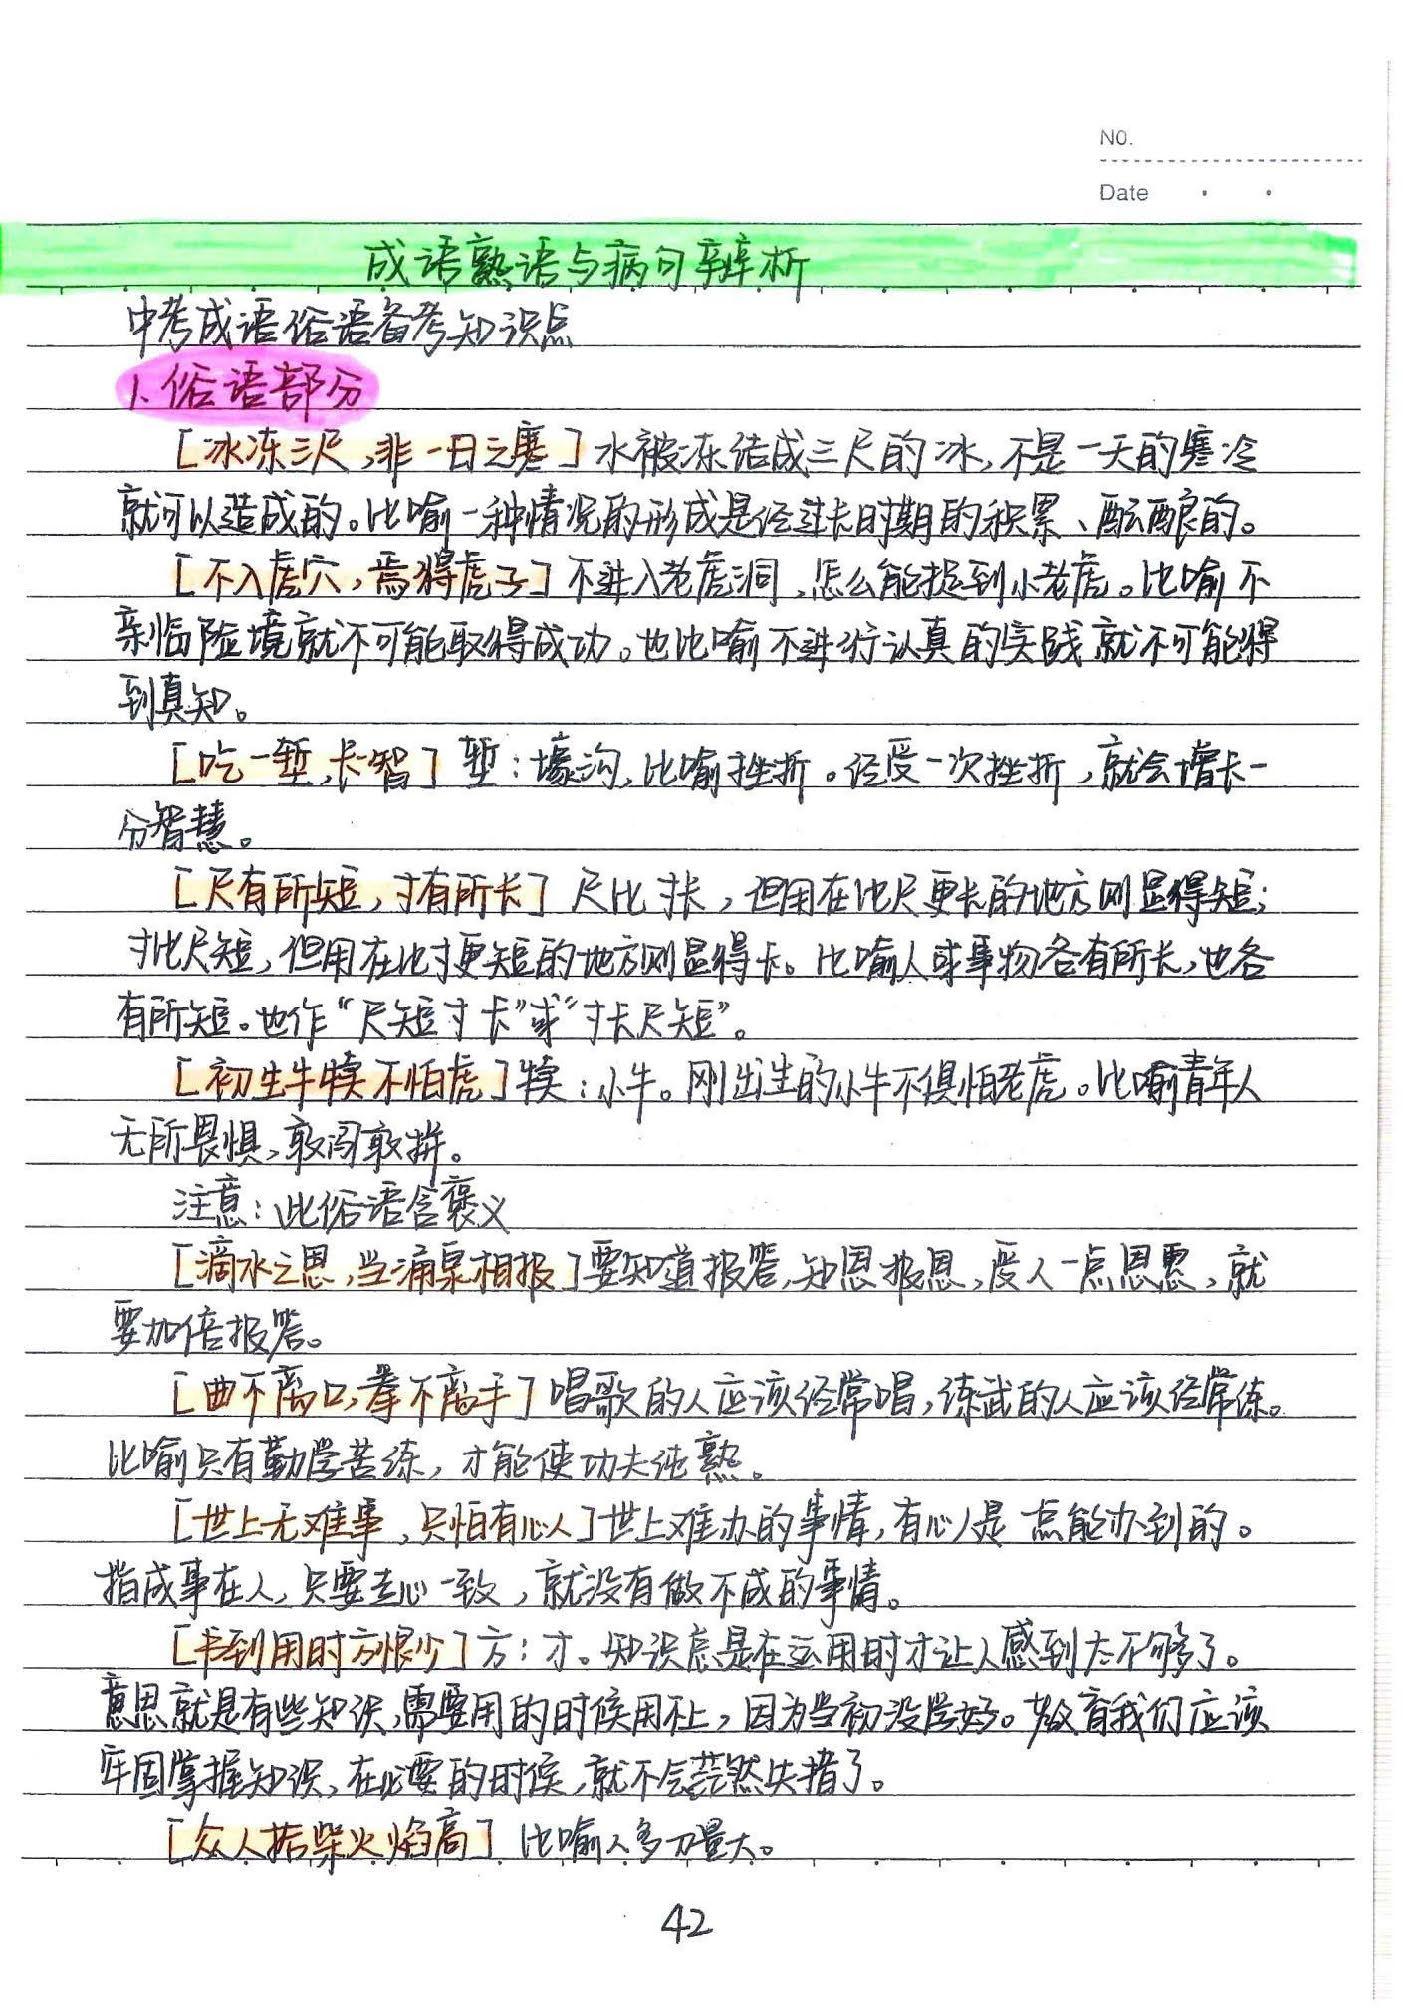 NO.
Date
成语熟语与病句辨析
中考成语俗语备考知识点
1、俗语部分
[冰冻三尺,非一日之寒] 水被冻结成三尺的冰,不是一天的寒冷
就可以造成的。比喻一种情况的形成是经过长时期的积累、酝酿的。
[不入虎穴,焉得虎子] 不进入老虎洞,怎么能捉到小老虎。比喻不
亲临险境就不可能取得成功。也比喻不进行认真的实践就不可能得
到真知。
[吃一堑,长智] 堑:壕沟,比喻挫折。经受一次挫折,就会增长一
分智慧。
[尺有所短,寸有所长] 尺比寸长,但用在比尺更长的地方则显得短;
寸比尺短,但用在比寸更短的地方则显得长。比喻人或事物各有所长,也各
有所短。也作“尺短寸长”或“寸长尺短”。
[初生牛犊不怕虎] 犊:小牛。刚出生的小牛不惧怕老虎。比喻青年人
无所畏惧,敢闯敢拼。
注意:此俗语含褒义
[滴水之恩,当涌泉相报] 要知道报答,知恩报恩,受人一点恩惠,就
要加倍报答。
[曲不离口,拳不离手] 唱歌的人应该经常唱,练武的人应该经常练。
比喻只有勤学苦练,才能使功夫纯熟。
[世上无难事,只怕有心人] 世上难办的事情,有心人是 点能办到的。
指成事在人,只要走心一致,就没有做不成的事情。
[书到用时方恨少] 方:才。知识总是在运用时才让人感到太不够了。
意思就是有些知识,需要用的时候用不上,因为当初没学好。教育我们应该
牢固掌握知识,在必要的时候,就不会茫然失措了。
[众人拾柴火焰高] 比喻人多力量大。
42